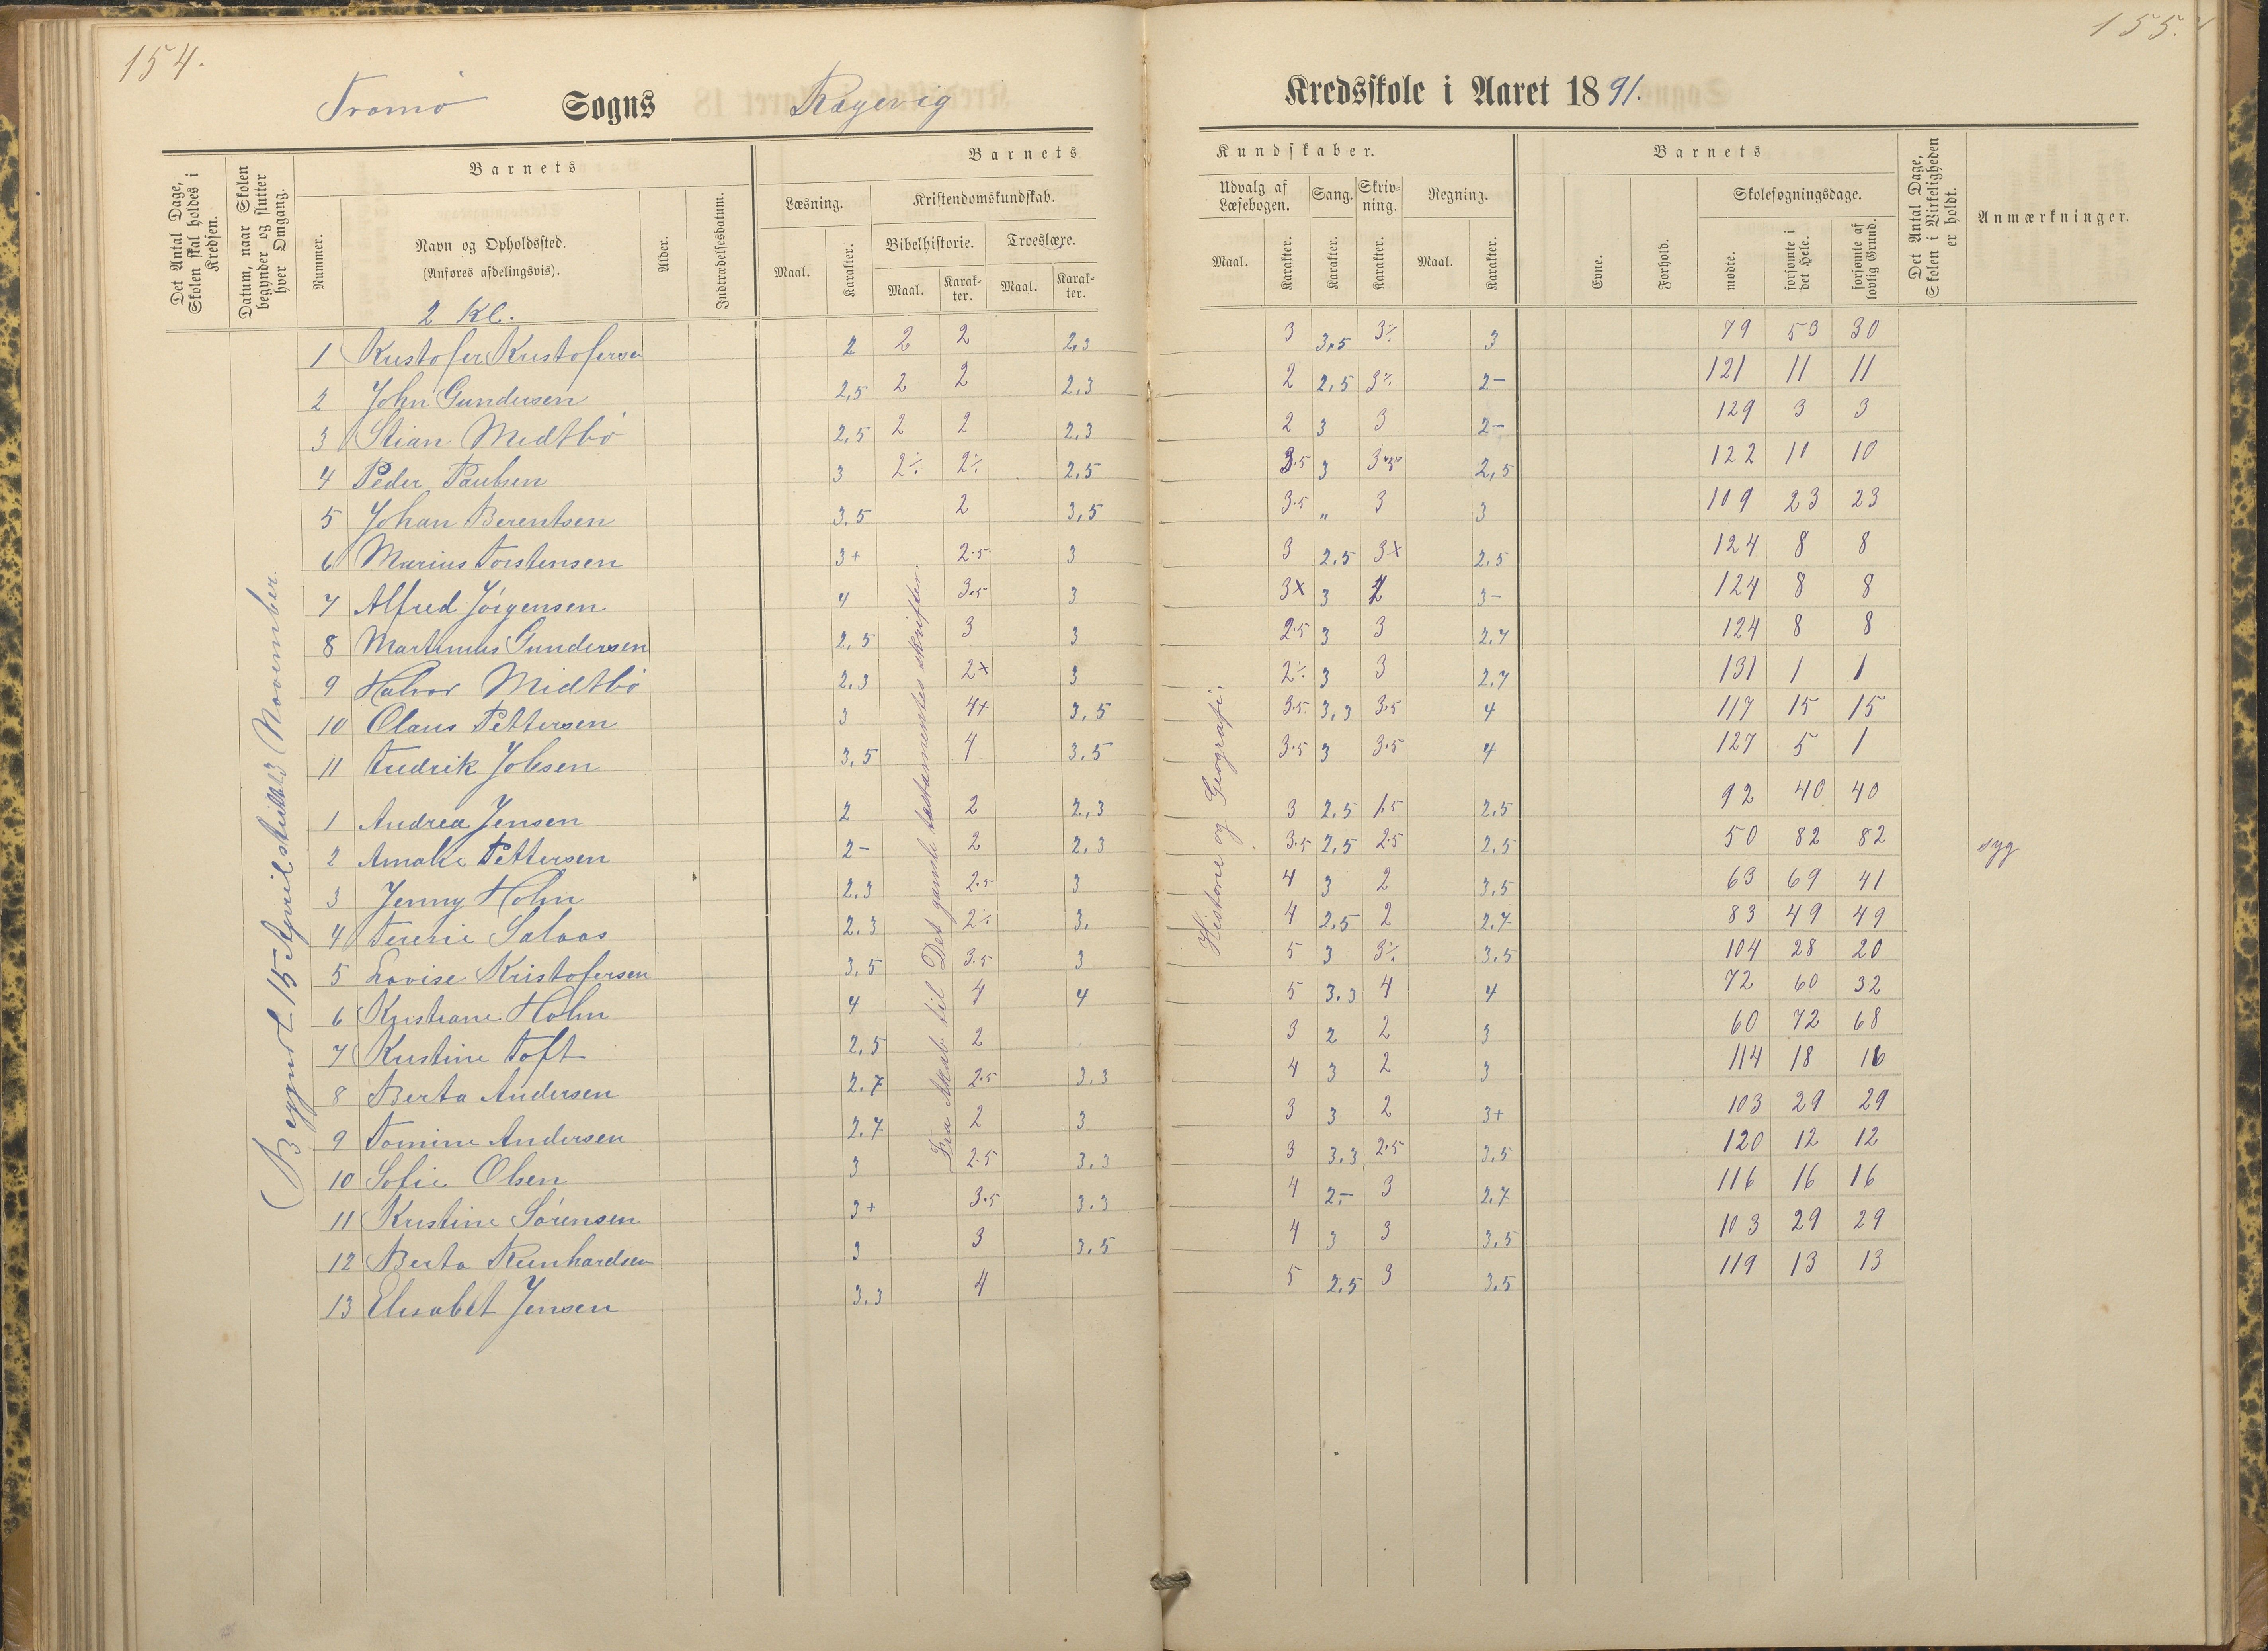 154.
155.
Tromø Sogns Ragevig Kredsskole i Aaret 1891.
Det Antal Dage, Skolen skal holdes i Kredsen.
Datum, naar Skolen begynder og slutter hver Omgang.
Nummer.
Barnets
Navn og Opholdssted.
(Anføres afdelingsvis).
Alder.
Indtrædelsesdatum.
Barnets Kundskaber.
Læsning.
Maal. Karakter.
Kristendomskundskab.
Bibelhistorie. Troeslære.
Maal. Karakter. Maal. Karakter.
Udvalg af Læsebogen.
Sang. Skrivning. Regning.
Maal. Karakter. Karakter. Karakter. Maal. Karakter.
Barnets
Evne. Forhold.
Skolesøgningsdage.
mødte. forsømte i det Hele. forsømte af lovlig Grund.
Det Antal Dage, Skolen i Virkeligheden er holdt.
Anmærkninger.
Begyndt 15 April sluttet 3 November.
Fra Skab til Det gamle testamentes skrifter.
Historie og Geografi.
2 Kl.
1 Kristofer Kristofersen 2 2 2 2,3 3 3,5 3÷ 3 79 53 30
2 John Gundersen 2,5 2 2 2,3 2 2,5 3÷ 2- 121 11 11
3 Stian Midtbø 2,5 2 2 2,3 2 3 3 2- 129 3 3
4 Peder Paulsen 3 2÷ 2÷ 2,5 3.5 3 3.5 2,5 122 11 10
5 Johan Berentsen 3,5 2 3,5 3.5 „ 3 3 109 23 23
6 Marius Torstensen 3+ 2.5 3 3 2,5 3x 2,5 124 8 8
7 Alfred Jørgensen 4 3.5 3 3x 3 4 3- 124 8 8
8 Martinius Gundersen 2,5 3 3 2.5 3 3 2,7 124 8 8
9 Halvor Midtbø 2,3 2x 3 2÷ 3 3 2,7 131 1 1
10 Olaus Pettersen 3 4x 3,5 3.5 3,3 3.5 4 117 15 15
11 Fredrik Jobsen 3,5 4 3,5 3.5 3 3.5 4 127 5 1
1 Andrea Jensen 2 2 2,3 3 2,5 1.5 2,5 92 40 40
2 Amalie Pettersen 2- 2 2,3 3.5 2,5 2.5 2,5 50 82 82 syg
3 Jenny Holm 2,3 2.5 3 4 3 2 3,5 63 69 41
4 Teresie Salaas 2,3 2÷ 3, 4 2,5 2 2,7 83 49 49
5 Lovise Kristofersen 3,5 3.5 3 5 3 3÷ 3,5 104 28 20
6 Kristiane Holm 4 4 4 5 3,3 4 4 72 60 32
7 Kristine Toft 2,5 2 3 2 2 3 60 72 68
8 Berta Andersen 2,7 2.5 3,3 4 3 2 3 114 18 16
9 Tomine Andersen 2,7 2 3 3 3 2 3+ 103 29 29
10 Sofie Olsen 3 2.5 3,3 3 3,3 2.5 3,5 120 12 12
11 Kristine Sørensen 3+ 3.5 3,3 4 2,- 3 2,7 116 16 16
12 Berta Reinhardsen 3 3 3,5 4 3 3 3,5 103 29 29
13 Elisabet Jensen 3,3 4 5 2,5 3 3,5 119 13 13